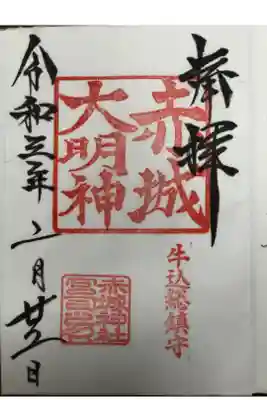 奉拝
赤城
大明神
牛込総鎮守
令和三年二月廿五日
赤城神社
宮司之印